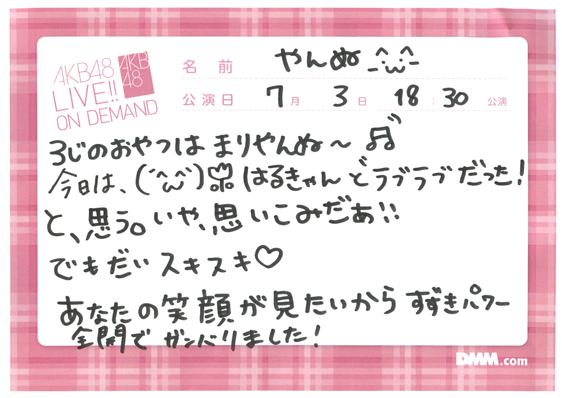 AKB48
LIVE!!
ON DEMAND
AKB
48
名前 やんぬ
公演日 7月 3日 18:30 公演
3じのおやつは まりやんぬ〜♬
今日は、(´^ω^`) はるきゃんとラブラブだった!
と、思う。いや、思いこみだあ!!
でもだいスキスキ♡
あなたの笑顔が見たいから すずきパワー
全開で ガンバリました!
DMM.com